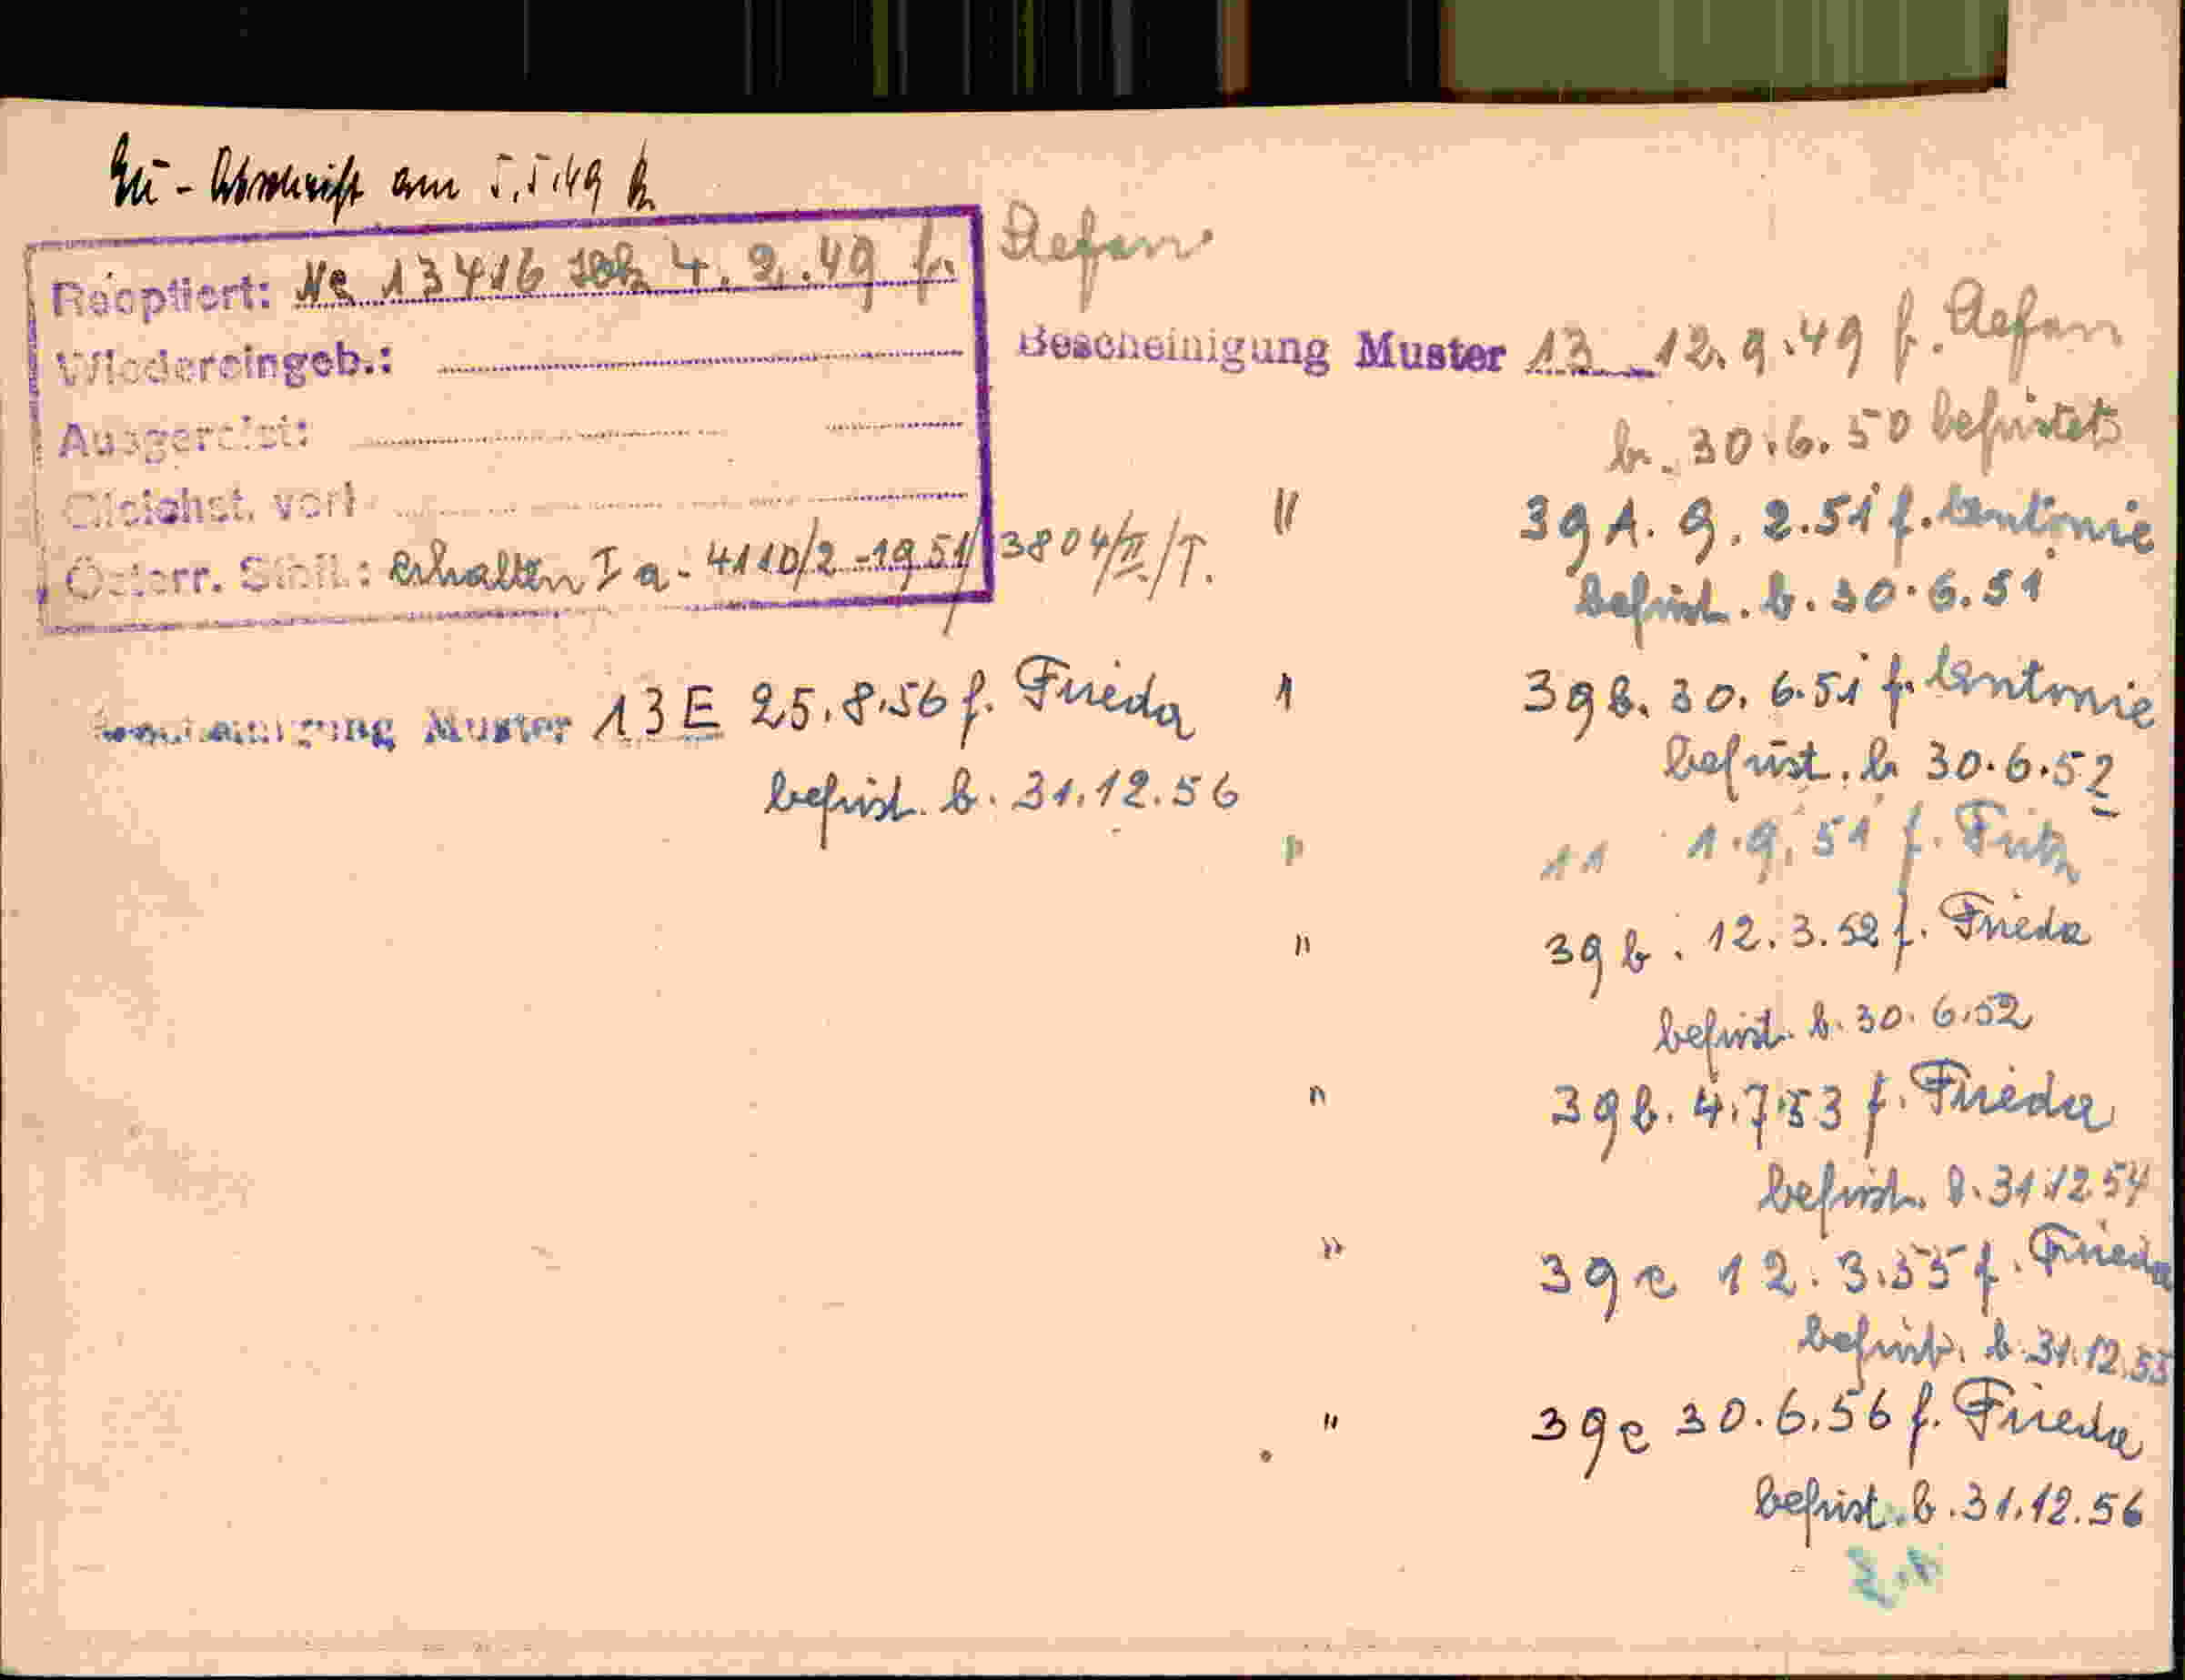 - Abschrift am 5.5.49
Reoptiert: No 13416 4.2.49 f. Stefan
Wiedereingeb.:
Ausgereist:
Gleichst. verl
Österr. Stbft.: erhalten I a - 4110/2 - 1951/3804/II/T.
Bescheinigung Muster 13 12.9.49 f. Stefan
b. 30.6.50 befristet
" 39 A. 9.2.51 f. Antonie
befrist. b. 30.6.51
" 39 b. 30.6.51 f. Antonie
befrist. b 30.6.52
" 11 1.9.51 f. Fritz
" 39 b. 12.3.52 f. Frieda
befrist. b. 30.6.52
" 39 b. 4.7.53 f. Frieda
befrist. b. 31.12.54
" 39 c 12.3.55 f. Frieda
befrist. b. 31.12.55
" 39 c 30.6.56 f. Frieda
befrist. b. 31.12.56
Bescheinigung Muster 13 E 25.8.56 f. Frieda
befrist. b. 31.12.56